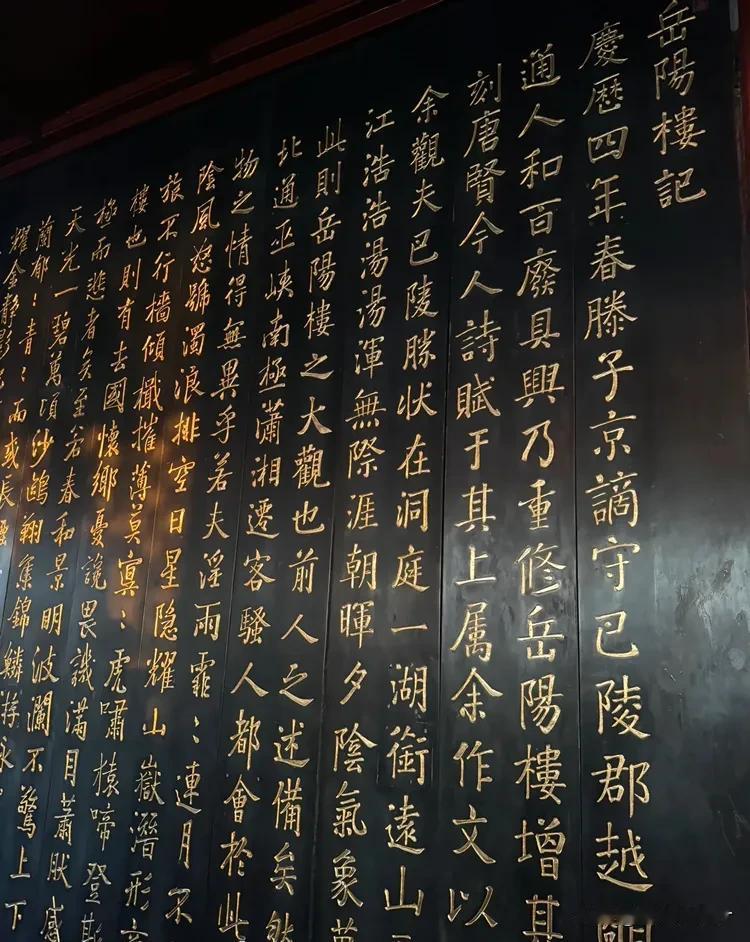 岳陽樓記
慶曆四年春滕子京謫守巴陵郡越明
通人和百廢具興乃重修岳陽樓增其
刻唐賢今人詩賦于其上属余作文以
余觀夫巴陵勝状在洞庭一湖銜遠山
江浩浩湯湯渾無際涯朝暉夕陰氣象萬
此則岳陽樓之大觀也前人之述備矣然
北通巫峽南極瀟湘遷客騷人都會於此
物之情得無異乎若夫淫雨霏〻連月不
陰風怒號濁浪排空日星隐耀山嶽潛形
旅不行檣傾檝摧薄莫冥〻虎嘯猿啼登斯
樓也則有去國懷鄉憂讒畏譏滿目蕭肰感
極而悲者矣至若春和景明波瀾不驚上下
天光一碧萬頃沙鷗翔集錦鱗游泳
蘭郁〻青〻而或長
耀金静影